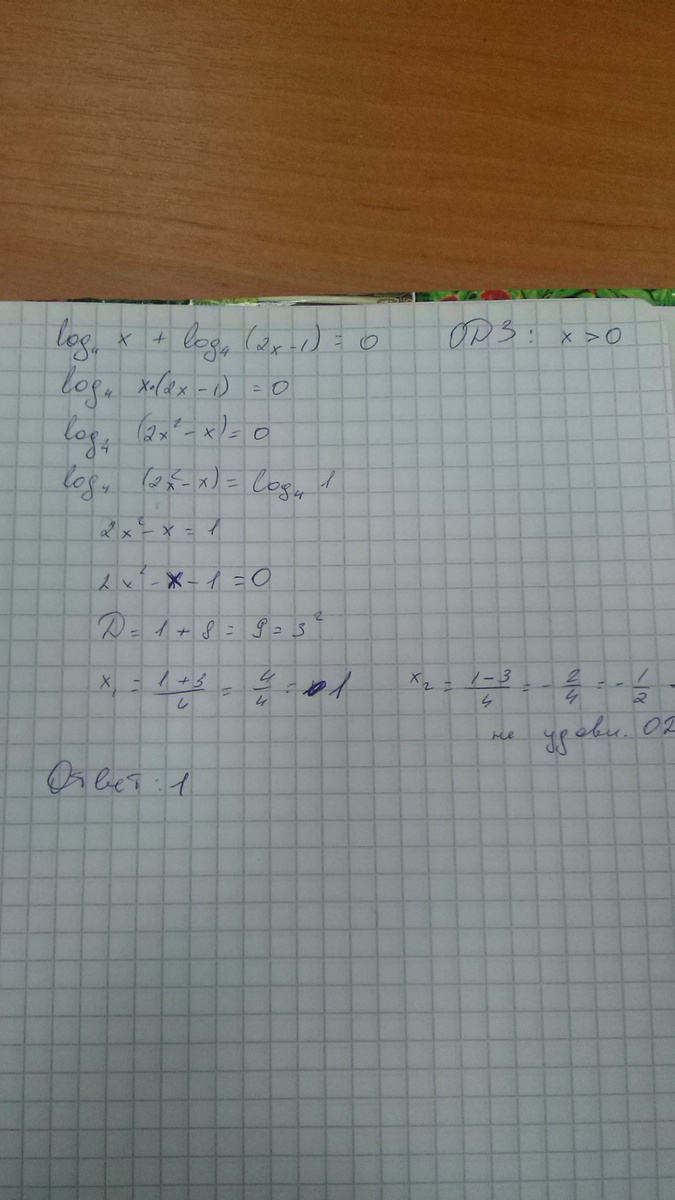 log₄ x + log₄ (2x-1) = 0 ОДЗ: x > 0
log₄ x·(2x-1) = 0
log₄ (2x²-x) = 0
log₄ (2x²-x) = log₄ 1
2x²-x = 1
2x²-x-1 = 0
D = 1+8 = 9 = 3²
x₁ = (1+3)/4 = 4/4 = 1 x₂ = (1-3)/4 = -2/4 = -1/2 -
не удовл. ОД
Ответ: 1